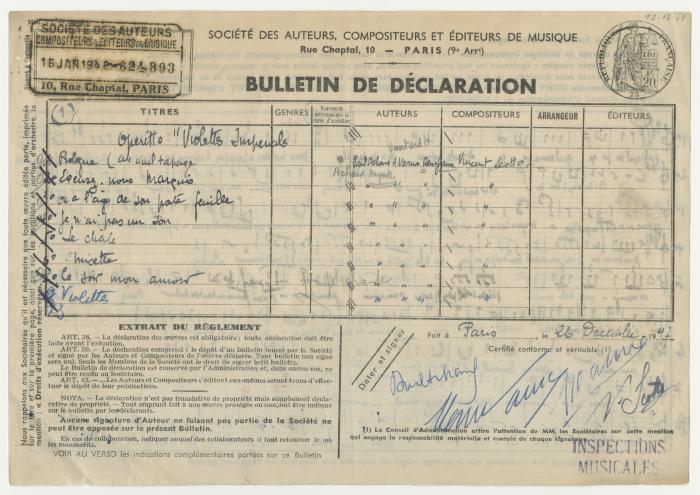 12-12-51
SOCIÉTÉ DES AUTEURS
COMPOSITEURS & ÉDITEURS DE MUSIQUE
15 JAN 1948 - 624,893
10, Rue Chaptal, PARIS
SOCIÉTÉ DES AUTEURS, COMPOSITEURS ET ÉDITEURS DE MUSIQUE
Rue Chaptal, 10 — PARIS (9e Arrt)
BULLETIN DE DÉCLARATION
RÉPUBLIQUE FRANÇAISE
TITRES GENRES AUTEURS COMPOSITEURS ARRANGEUR ÉDITEURS
(1)
Operette "Violettes Impériales
Prologue (ah quel tapage Vincent Scotto
Ecoutez-nous Marquis
on a l'âge de son porte feuille
Je n'ai pas un son
Le chale
Ce soir mon amour
Violetta
EXTRAIT DU RÈGLEMENT
ART. 38. — La déclaration des œuvres est obligatoire ; toute déclaration doit être
faite avant l'exécution.
ART. 39. — La déclaration comprend : le dépôt d'un bulletin fourni par la Société
et signé par les Auteurs et Compositeurs de l'œuvre déclarée. Tout bulletin non signé
sera nul. Seuls les Membres de la Société ont le droit de signer ledit bulletin.
Le Bulletin de déclaration est conservé par l'Administration et, dans aucun cas, ne
peut être rendu au Sociétaire.
ART. 42. — Les Auteurs et Compositeurs s'éditant eux-mêmes seront tenus d'effec-
tuer le dépôt de leur publications.
NOTA. — La déclaration n'est pas translative de propriété mais simplement décla-
rative de propriété. — Tout emprunt fait à une œuvre protégée ou non, doit être indiqué
sur le bulletin par les déclarants.
Aucune signature d'Auteur ne faisant pas partie de la Société ne
peut être apposée sur le présent Bulletin.
En cas de collaboration, indiquer auquel des collaborateurs il faut retourner le
VOIR AU VERSO les indications complémentaires portées sur ce Bulletin
Dater et signer
Fait à Paris, le 26 Decembre 1947
Certifié conforme et véritable
V. Scotto
(1) Le Conseil d'Administration attire l'attention de MM. les Sociétaires sur cette mention
qui engage la responsabilité matérielle et morale de chaque signataire.
INSPECTIONS
MUSICALES